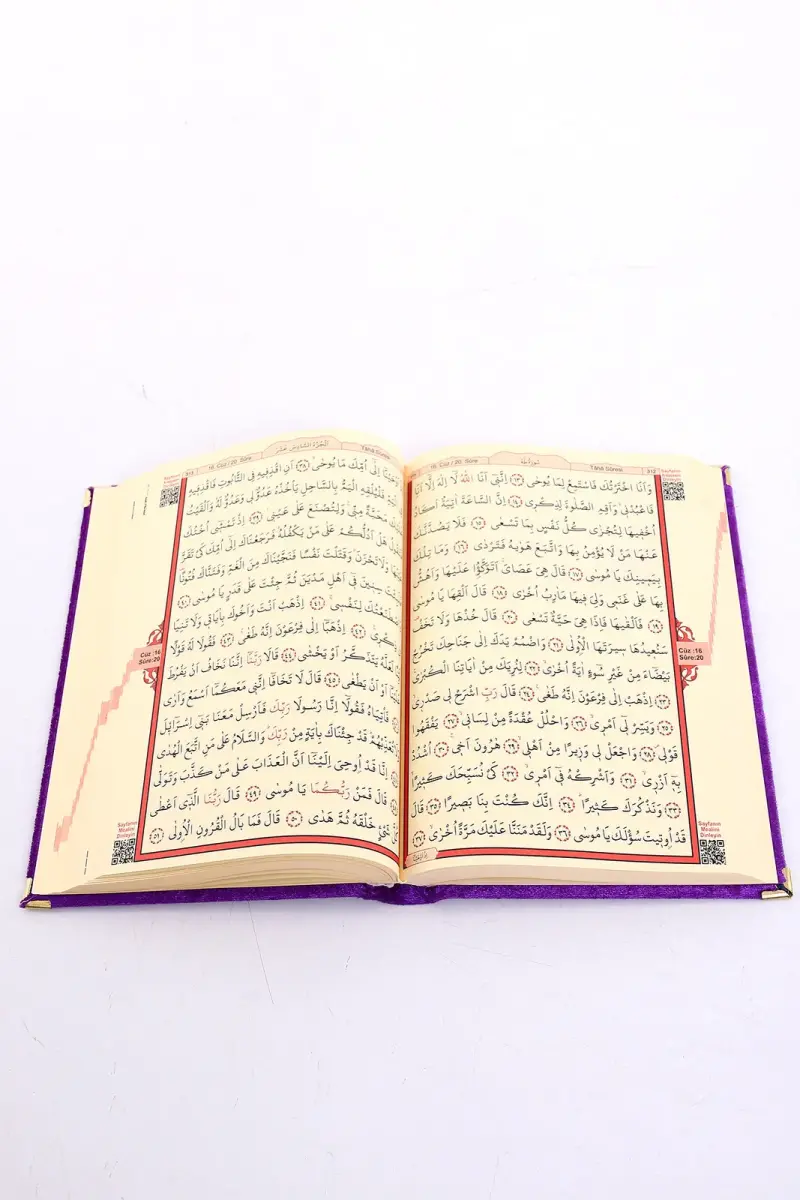 312
Tâhâ Sûresi
سورة طه
16. Cüz / 20. Sûre
وَاَنَا اخْتَرْتُكَ فَاسْتَمِعْ لِمَا يُوحٰى ﴿١٣﴾ اِنَّنٓي اَنَا اللّٰهُ لَٓا اِلٰهَ اِلَّٓا اَنَا
فَاعْبُدْنٖي وَاَقِمِ الصَّلٰوةَ لِذِكْرٖي ﴿١٤﴾ اِنَّ السَّاعَةَ اٰتِيَةٌ اَكَادُ
اُخْفٖيهَا لِتُجْزٰى كُلُّ نَفْسٍ بِمَا تَسْعٰى ﴿١٥﴾ فَلَا يَصُدَّنَّكَ
عَنْهَا مَنْ لَا يُؤْمِنُ بِهَا وَاتَّبَعَ هَوٰيهُ فَتَرْدٰى ﴿١٦﴾ وَمَا تِلْكَ
بِيَمٖينِكَ يَا مُوسٰى ﴿١٧﴾ قَالَ هِيَ عَصَايَ اَتَوَكَّؤُا عَلَيْهَا وَاَهُشُّ
بِهَا عَلٰى غَنَمٖي وَلِيَ فٖيهَا مَاٰرِبُ اُخْرٰى ﴿١٨﴾ قَالَ اَلْقِهَا يَا مُوسٰى
﴿١٩﴾ فَاَلْقٰيهَا فَاِذَا هِيَ حَيَّةٌ تَسْعٰى ﴿٢٠﴾ قَالَ خُذْهَا وَلَا تَخَفْ
سَنُعٖيدُهَا سٖيرَتَهَا الْاُولٰى ﴿٢١﴾ وَاضْمُمْ يَدَكَ اِلٰى جَنَاحِكَ تَخْرُجْ
بَيْضَٓاءَ مِنْ غَيْرِ سُٓوءٍ اٰيَةً اُخْرٰى ﴿٢٢﴾ لِنُرِيَكَ مِنْ اٰيَاتِنَا الْكُبْرٰى
﴿٢٣﴾ اِذْهَبْ اِلٰى فِرْعَوْنَ اِنَّهُ طَغٰى ﴿٢٤﴾ قَالَ رَبِّ اشْرَحْ لٖي صَدْرٖي
﴿٢٥﴾ وَيَسِّرْ لٖٓي اَمْرٖي ﴿٢٦﴾ وَاحْلُلْ عُقْدَةً مِنْ لِسَانٖي ﴿٢٧﴾ يَفْقَهُوا
قَوْلٖي ﴿٢٨﴾ وَاجْعَلْ لٖي وَزٖيرًا مِنْ اَهْلٖي ﴿٢٩﴾ هٰرُونَ اَخٖي ﴿٣٠﴾ اُشْدُدْ
بِهٖٓ اَزْرٖي ﴿٣١﴾ وَاَشْرِكْهُ فٖٓي اَمْرٖي ﴿٣٢﴾ كَيْ نُسَبِّحَكَ كَثٖيرًا
﴿٣٣﴾ وَنَذْكُرَكَ كَثٖيرًا ﴿٣٤﴾ اِنَّكَ كُنْتَ بِنَا بَصٖيرًا ﴿٣٥﴾ قَالَ
قَدْ اُوتٖيتَ سُؤْلَكَ يَا مُوسٰى ﴿٣٦﴾ وَلَقَدْ مَنَنَّا عَلَيْكَ مَرَّةً اُخْرٰى ﴿٣٧﴾
Cüz :16
Sûre:20
Sayfanın
Mealini
Dinleyin
Tâhâ Sûresi
الجزء السادس عشر
16. Cüz / 20. Sûre
313
اَوْحَيْنَٓا اِلٰٓى اُمِّكَ مَا يُوحٰى ﴿٣٨﴾ اَنِ اقْذِفٖيهِ فِي التَّابُوتِ فَاقْذِفٖيهِ
فَلْيُلْقِهِ الْيَمُّ بِالسَّاحِلِ يَأْخُذْهُ عَدُوٌّ لٖي وَعَدُوٌّ لَهُ وَاَلْقَيْتُ
عَلَيْكَ مَحَبَّةً مِنّٖي وَلِتُصْنَعَ عَلٰى عَيْنٖي ﴿٣٩﴾ اِذْ تَمْشٖٓي اُخْتُكَ
هَلْ اَدُلُّكُمْ عَلٰى مَنْ يَكْفُلُهُ فَرَجَعْنَاكَ اِلٰٓى اُمِّكَ كَيْ تَقَرَّ
وَلَا تَحْزَنَ وَقَتَلْتَ نَفْسًا فَنَجَّيْنَاكَ مِنَ الْغَمِّ وَفَتَنَّاكَ فُتُونًا
سِنٖينَ فٖٓي اَهْلِ مَدْيَنَ ثُمَّ جِئْتَ عَلٰى قَدَرٍ يَا مُوسٰى ﴿٤٠﴾
لِنَفْسٖي ﴿٤١﴾ اِذْهَبْ اَنْتَ وَاَخُوكَ بِاٰيَاتٖي وَلَا تَنِيَا
﴿٤٢﴾ اِذْهَبَٓا اِلٰى فِرْعَوْنَ اِنَّهُ طَغٰى ﴿٤٣﴾ فَقُولَا لَهُ قَوْلًا
لَعَلَّهُ يَتَذَكَّرُ اَوْ يَخْشٰى ﴿٤٤﴾ قَالَا رَبَّنَٓا اِنَّنَا نَخَافُ اَنْ يَفْرُطَ
اَوْ اَنْ يَطْغٰى ﴿٤٥﴾ قَالَ لَا تَخَافَٓا اِنَّنٖي مَعَكُمَٓا اَسْمَعُ وَاَرٰى
فَأْتِيَاهُ فَقُولَٓا اِنَّا رَسُولَا رَبِّكَ فَاَرْسِلْ مَعَنَا بَنٖٓي اِسْرَٓائٖلَ
تُعَذِّبْهُمْ قَدْ جِئْنَاكَ بِاٰيَةٍ مِنْ رَبِّكَ وَالسَّلَامُ عَلٰى مَنِ اتَّبَعَ الْهُدٰى
اِنَّا قَدْ اُوحِيَ اِلَيْنَٓا اَنَّ الْعَذَابَ عَلٰى مَنْ كَذَّبَ وَتَوَلّٰى
قَالَ فَمَنْ رَبُّكُمَا يَا مُوسٰى ﴿٤٩﴾ قَالَ رَبُّنَا الَّذٖٓي اَعْطٰى
شَيْءٍ خَلْقَهُ ثُمَّ هَدٰى ﴿٥٠﴾ قَالَ فَمَا بَالُ الْقُرُونِ الْاُولٰى ﴿٥١﴾
Cüz :16
Sûre:20
Sayfanın
Mealini
Dinleyin